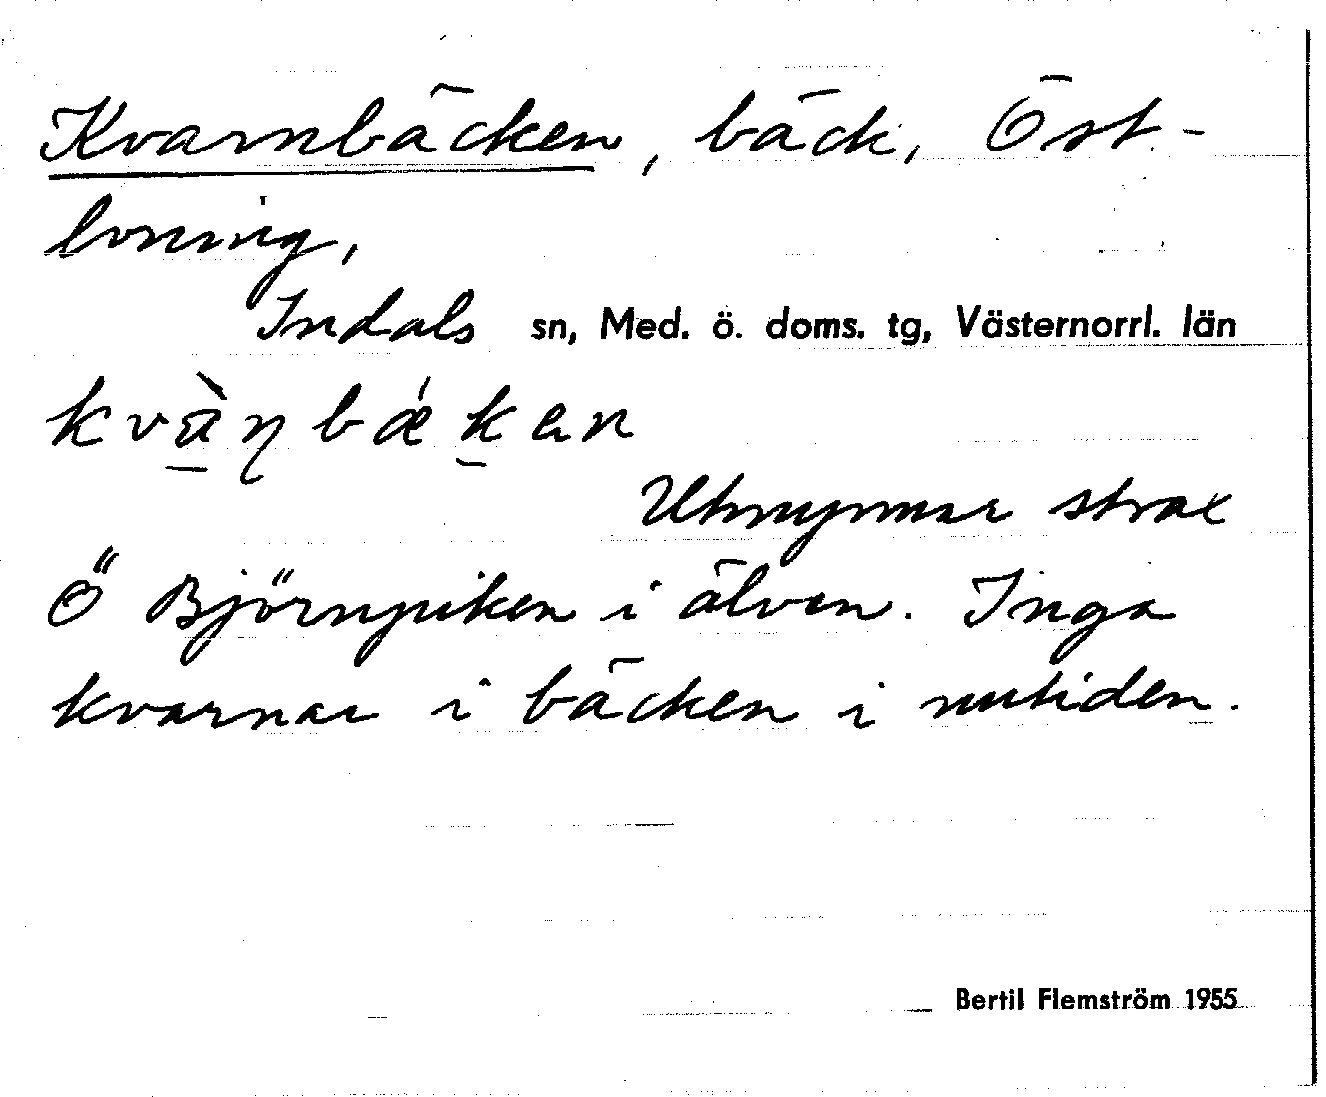 Kvarnbäcken, bäck, Öst-
loning,
Indals sn, Med. ö. doms. tg, Västernorrl. län
kvànbǽken
Utmynnar strax
Ö Björnpiken i älven. Inga
kvarnar i bäcken i nutiden.
Bertil Flemström 1955